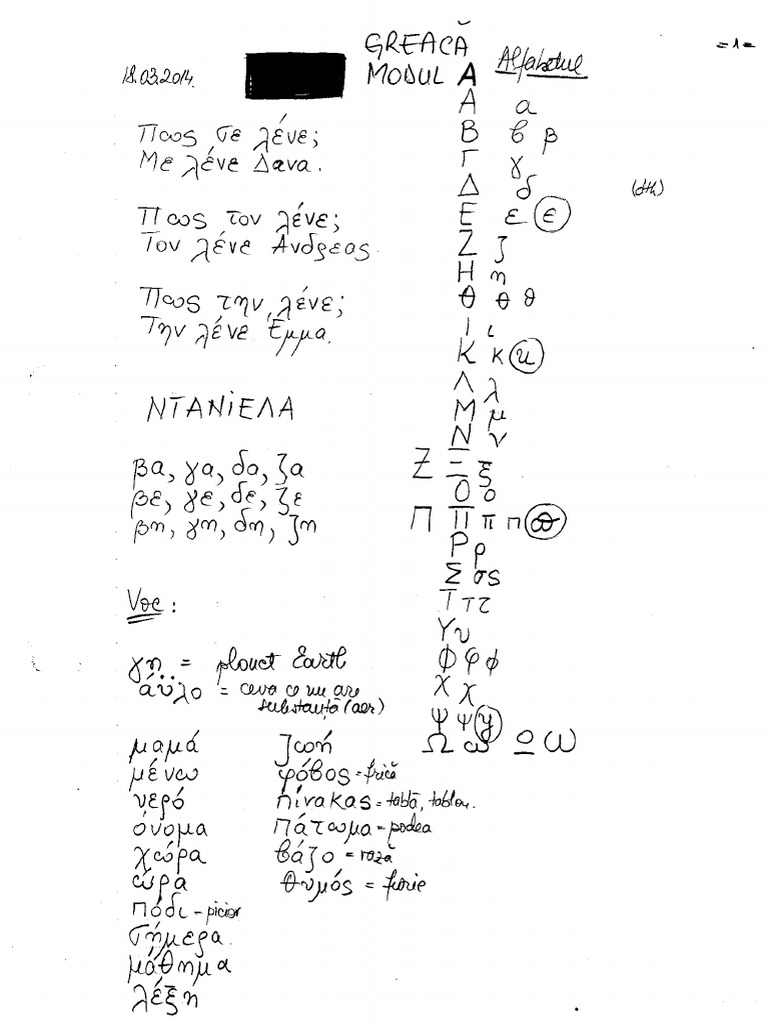 GREACĂ
= 1 =
18.03.2014.
MODUL A
Alfabetul
A α
Πως σε λένε;
B β β
Με λένε Δανα.
Γ γ
Δ δ
(dth)
Πως τον λένε;
E ε ϵ
Τον λένε Ανδρεας.
Z ζ
H η
Πως την λένε;
Θ θ θ
Την λένε Έμμα.
Ι ι
Κ κ u
Λ λ
ΝΤΑΝiΕΛΑ
Μ μ
Ν ν
βα, γα, δα, ζα
Ζ Ξ ξ
βε, γε, δε, ζε
Ο ο
βη, γη, δη, ζη
Π Π π п ϖ
Ρ ρ
Σ σς
Voc:
Τ τ τ
Υ υ
γη = planet Earth
Φ φ ϕ
άϋλο = ceva ce nu are
Χ χ
substanță (aer)
Ψ ψ y
μαμά ζωή
Ω ω Ο ω
μένω φόβος = frică
νερό πίνακας = tablă, tablou.
όνομα πάτωμα = podea
χώρα βάζο = vază
ώρα θυμός = furie
πόδι - picior
σήμερα
μάθημα
λέξη